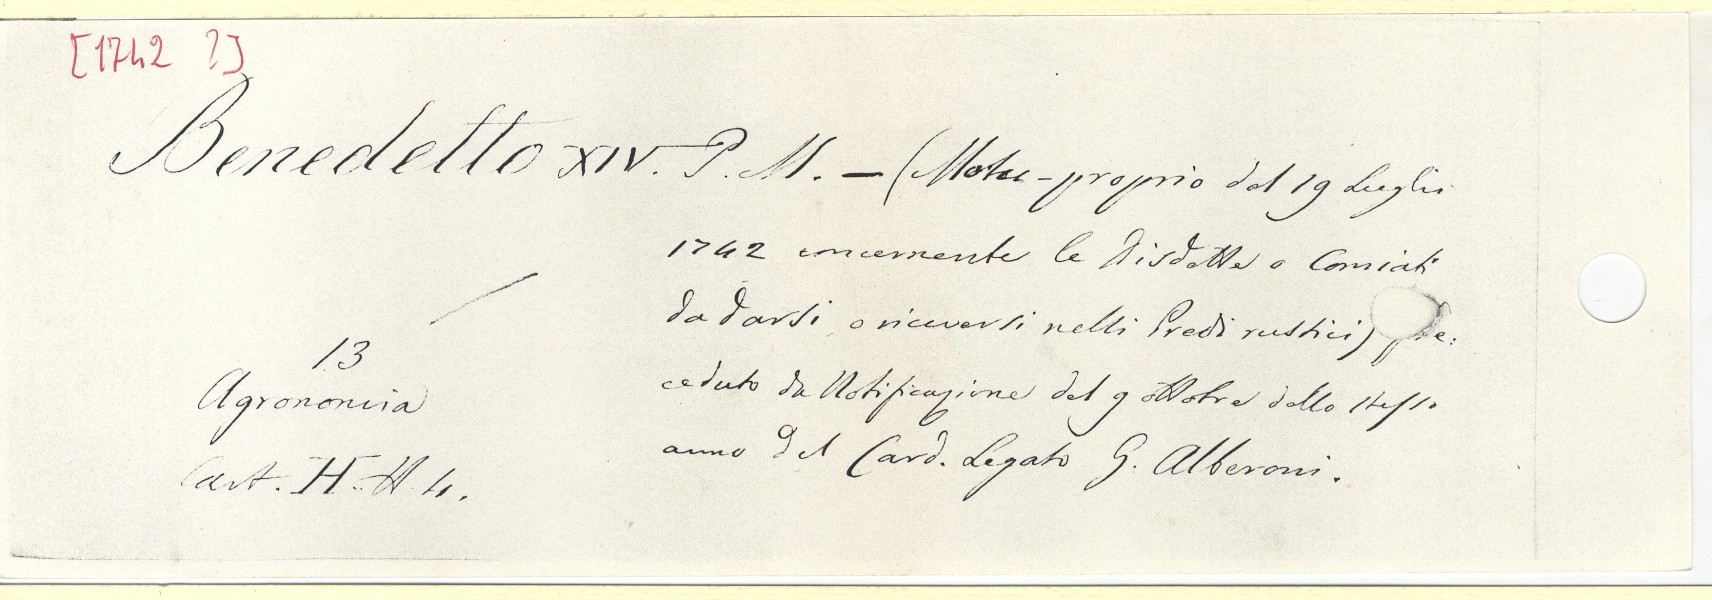 [1742 ?]
Benedetto XIV. P. M. — (Motu-proprio del 19 Luglio
1742 concernente le Disdette o Comiati
da darsi o riceversi nelli Predi rustici) pre:
ceduto da Notificazione del 9 ottobre dello stesso
anno del Card. Legato G. Alberoni.
13
Agronomia
Cart. H.